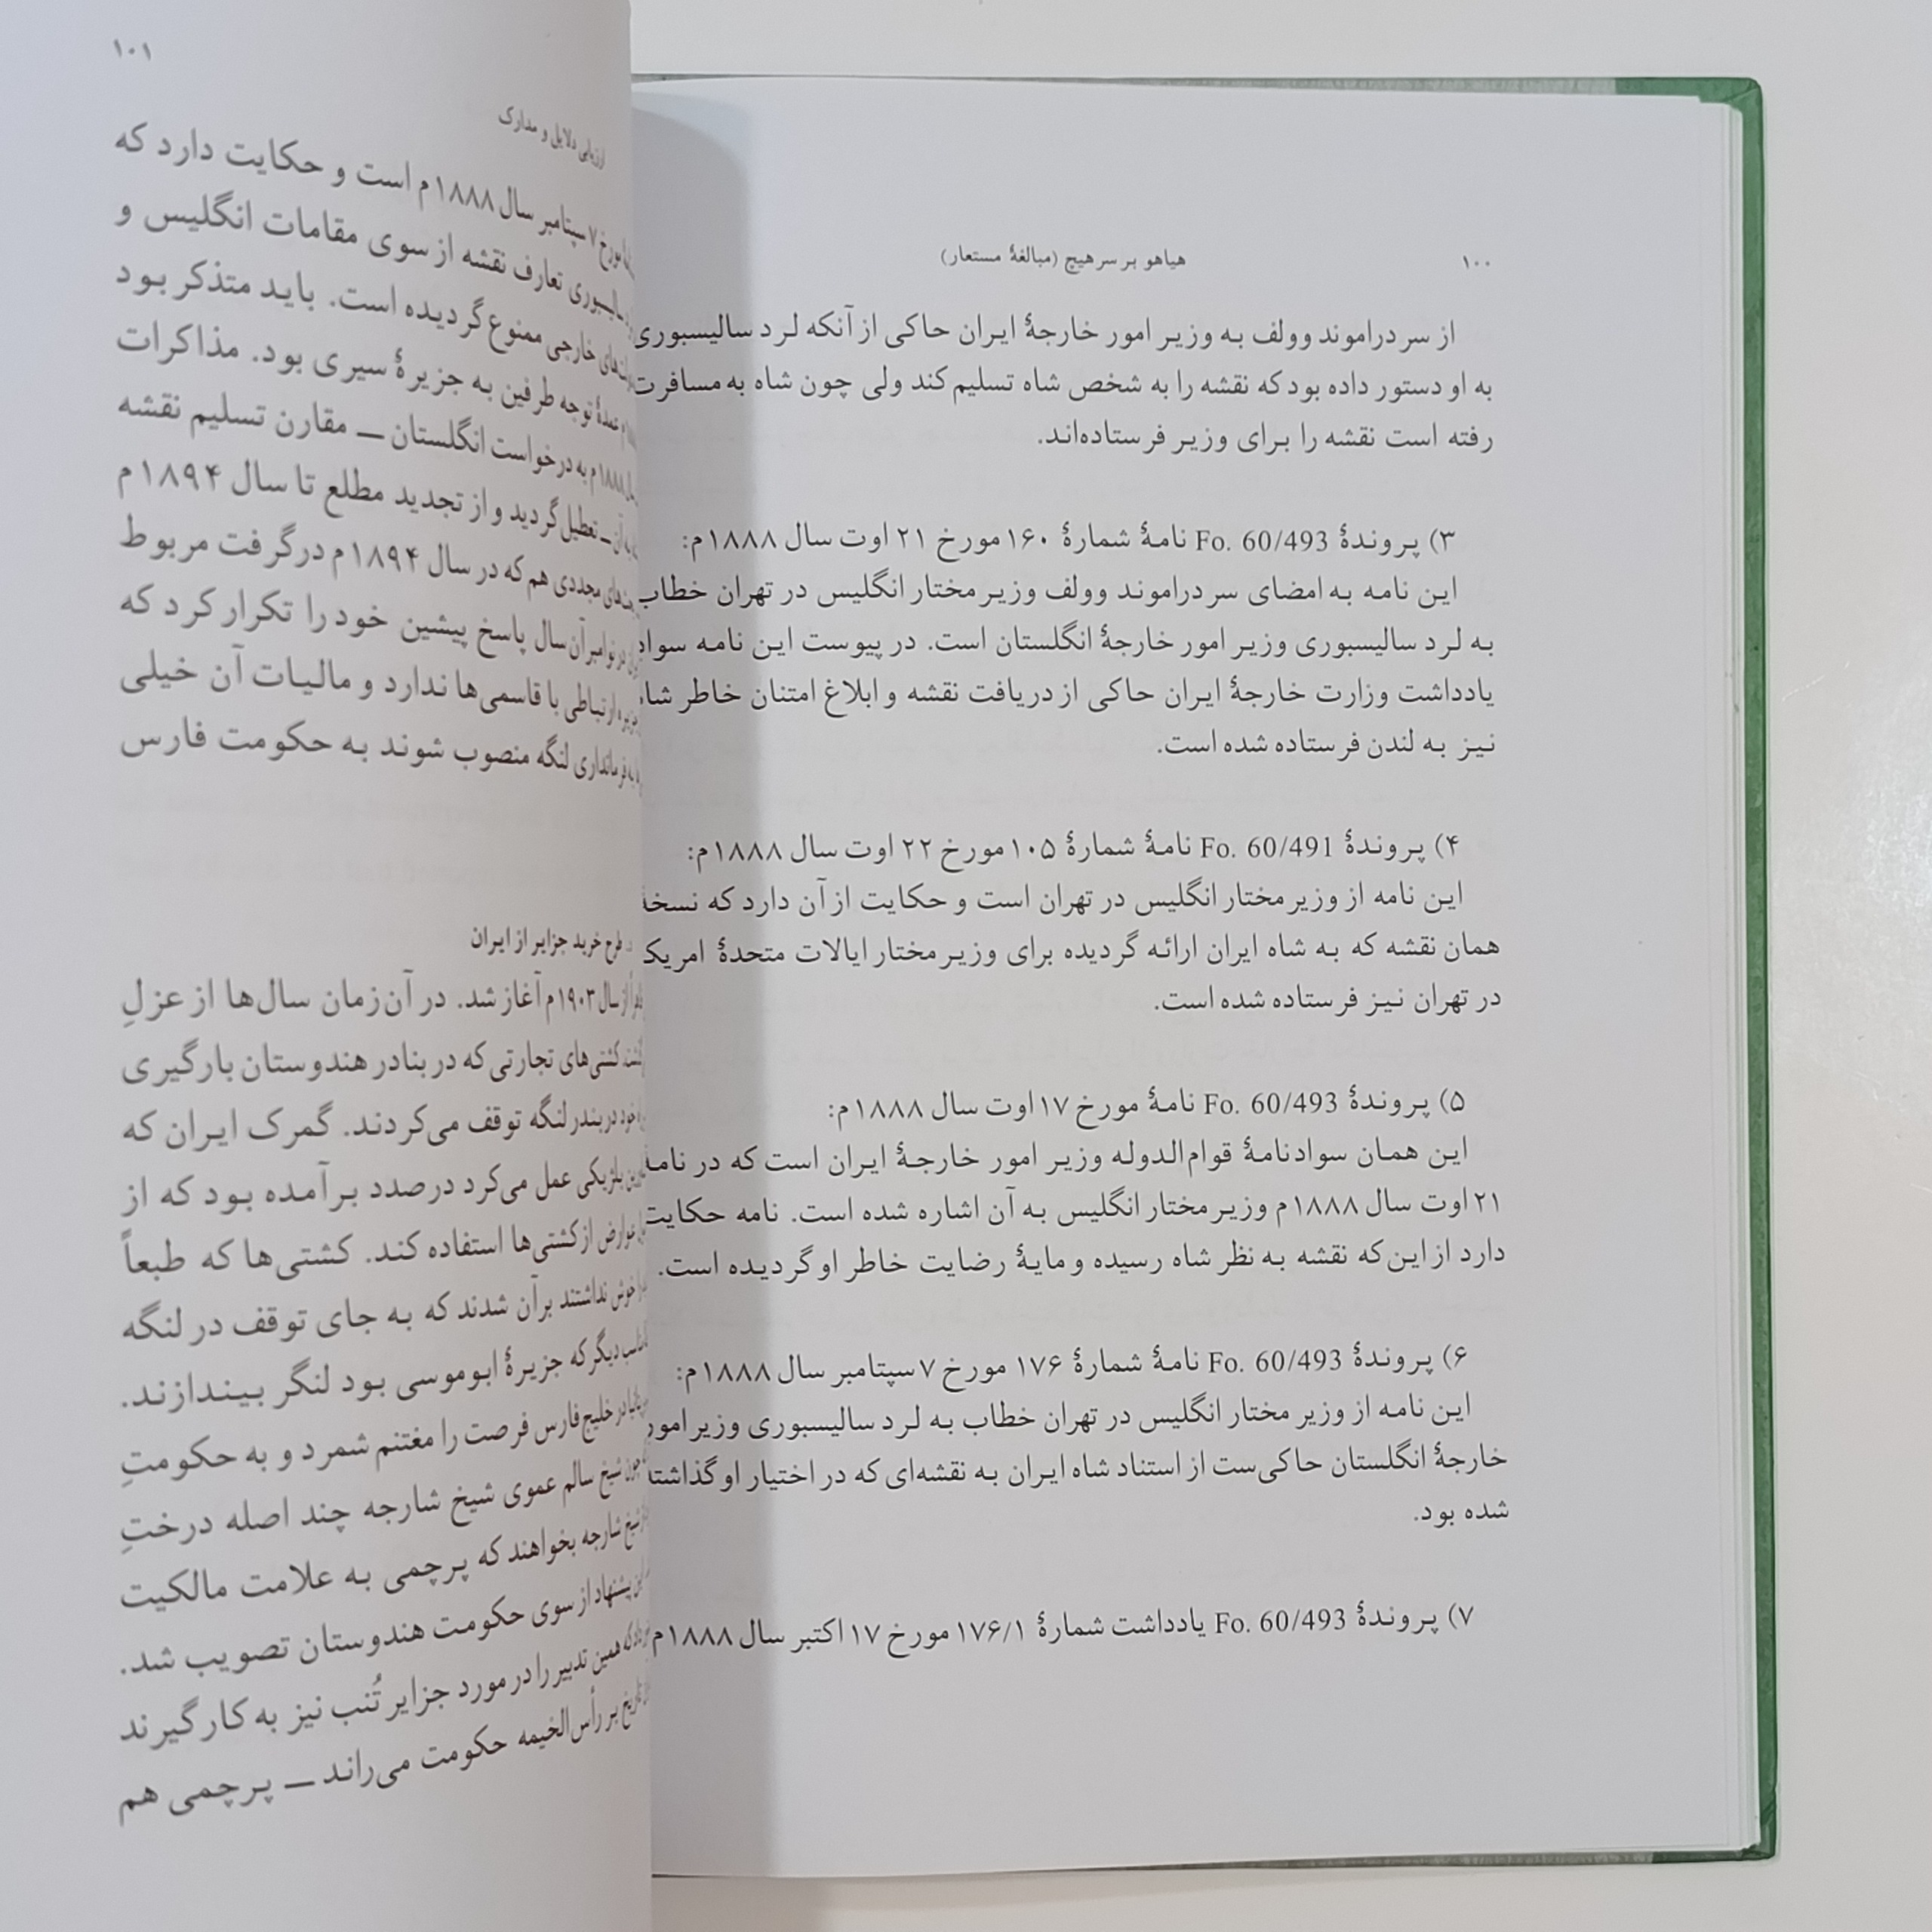 ۱۰۰
هیاهو بر سر هیچ (مبالغهٔ مستعار)
از سر دراموند وولف به وزیر امور خارجهٔ ایران حاکی از آنکه لرد سالیسبوری
به او دستور داده بود که نقشه را به شخص شاه تسلیم کند ولی چون شاه به مسافرت
رفته است نقشه را برای وزیر فرستاده‌اند.
۳) پروندهٔ Fo. 60/493 نامهٔ شمارهٔ ۱۶۰ مورخ ۲۱ اوت سال ۱۸۸۸م:
این نامه به امضای سر دراموند وولف وزیر مختار انگلیس در تهران خطاب
به لرد سالیسبوری وزیر امور خارجهٔ انگلستان است. در پیوست این نامه سواد
یادداشت وزارت خارجهٔ ایران حاکی از دریافت نقشه و ابلاغ امتنان خاطر شاه
نیز به لندن فرستاده شده است.
۴) پروندهٔ Fo. 60/491 نامهٔ شمارهٔ ۱۰۵ مورخ ۲۲ اوت سال ۱۸۸۸م:
این نامه از وزیر مختار انگلیس در تهران است و حکایت از آن دارد که نسخهٔ
همان نقشه که به شاه ایران ارائه گردیده برای وزیر مختار ایالات متحدهٔ امریکا
در تهران نیز فرستاده شده است.
۵) پروندهٔ Fo. 60/493 نامهٔ مورخ ۱۷ اوت سال ۱۸۸۸م:
این همان سواد نامهٔ قوام‌الدوله وزیر امور خارجهٔ ایران است که در نامهٔ
۲۱ اوت سال ۱۸۸۸م وزیر مختار انگلیس به آن اشاره شده است. نامه حکایت
دارد از این که نقشه به نظر شاه رسیده و مایهٔ رضایت خاطر او گردیده است.
۶) پروندهٔ Fo. 60/493 نامهٔ شمارهٔ ۱۷۶ مورخ ۷ سپتامبر سال ۱۸۸۸م:
این نامه از وزیر مختار انگلیس در تهران خطاب به لرد سالیسبوری وزیر امور
خارجهٔ انگلستان حاکی‌ست از استناد شاه ایران به نقشه‌ای که در اختیار او گذاشته
شده بود.
۷) پروندهٔ Fo. 60/493 یادداشت شمارهٔ ۱۷۶/۱ مورخ ۱۷ اکتبر سال ۱۸۸۸م
۱۰۱
ارزیابی دلایل و مدارک
مورخ ۷ سپتامبر سال ۱۸۸۸م است و حکایت دارد که
سالیسبوری تعارف نقشه از سوی مقامات انگلیس و
خارجی ممنوع گردیده است. باید متذکر بود
عمدهٔ توجه طرفین به جزیرهٔ سیری بود. مذاکرات
سال ۱۸۸۸م به درخواست انگلستان ــ مقارن تسلیم نقشه
آن ــ تعطیل گردید و از تجدید مطلع تا سال ۱۸۹۴م
مجددی هم که در سال ۱۸۹۴م درگرفت مربوط
در نوامبر آن سال پاسخ پیشین خود را تکرار کرد که
ارتباطی با قاسمی‌ها ندارد و مالیات آن خیلی
به فرمانداری لنگه منصوب شوند به حکومت فارس
طرح خرید جزایر از ایران
از سال ۱۹۰۳م آغاز شد. در آن زمان سال‌ها از عزلِ
کشتی‌های تجارتی که در بنادر هندوستان بارگیری
خود در بندر لنگه توقف می‌کردند. گمرک ایران که
بلژیکی عمل می‌کرد درصدد برآمده بود که از
عوارض از کشتی‌ها استفاده کند. کشتی‌ها که طبعاً
خوش نداشتند برآن شدند که به جای توقف در لنگه
دیگر که جزیرهٔ ابوموسی بود لنگر بیندازند.
در خلیج فارس فرصت را مغتنم شمرد و به حکومتِ
چون شیخ سالم عموی شیخ شارجه چند اصله درختِ
شیخ شارجه بخواهند که پرچمی به علامت مالکیت
پیشنهاد از سوی حکومت هندوستان تصویب شد.
که همین تدبیر را در مورد جزایر تُنب نیز به کار گیرند
تاریخ بر رأس‌الخیمه حکومت می‌راند ــ پرچمی هم